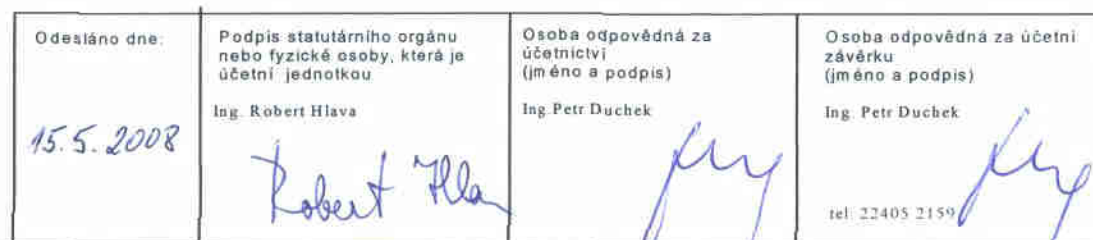 Odesláno dne:
15.5.2008
Podpis statutárního orgánu
nebo fyzické osoby, která je
účetní jednotkou
Ing. Robert Hlava
Robert Hlav
Osoba odpovědná za
účetnictví
(jméno a podpis)
Ing.Petr Duchek
Osoba odpovědná za účetní
závěrku
(jméno a podpis)
Ing. Petr Duchek
tel: 22405 2159